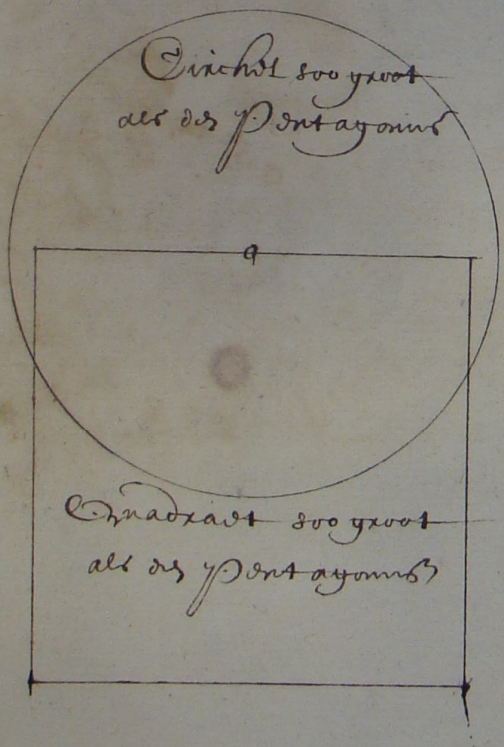 Circhel soo groot
als den Pentagonus
a
Quadraet soo groot
als den Pentagonus